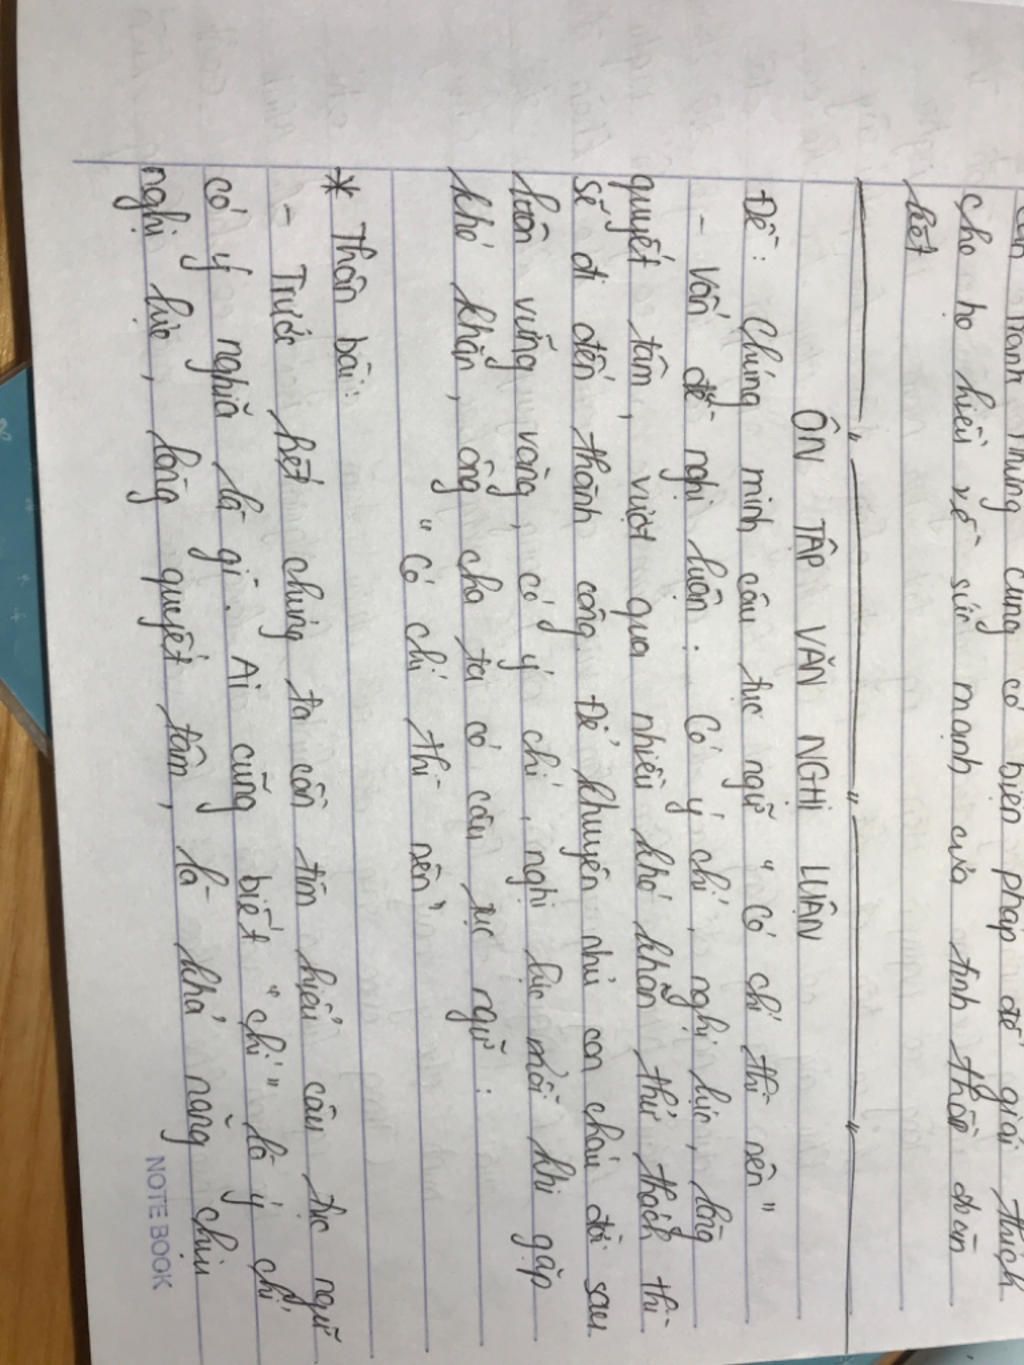 mạnh chúng cũng có biện pháp để giải thích
cho họ hiểu về sức mạnh của tinh thần đoàn
kết
ÔN TẬP VĂN NGHỊ LUẬN
Đề: Chứng minh câu tục ngữ "Có chí thì nên"
- Vấn đề nghị luận: Có ý chí, nghị lực, lòng
quyết tâm, vượt qua nhiều khó khăn thử thách thì
sẽ đi đến thành công. Để khuyên nhủ con cháu đời sau
luôn vững vàng, có ý chí, nghị lực mỗi khi gặp
khó khăn, ông cha ta có câu tục ngữ:
"Có chí thì nên"
* Thân bài:
- Trước hết chúng ta cần tìm hiểu câu tục ngữ
có ý nghĩa là gì. Ai cũng biết "chí" là ý chí
nghị lực, lòng quyết tâm, là khả năng chịu
NOTE BOOK